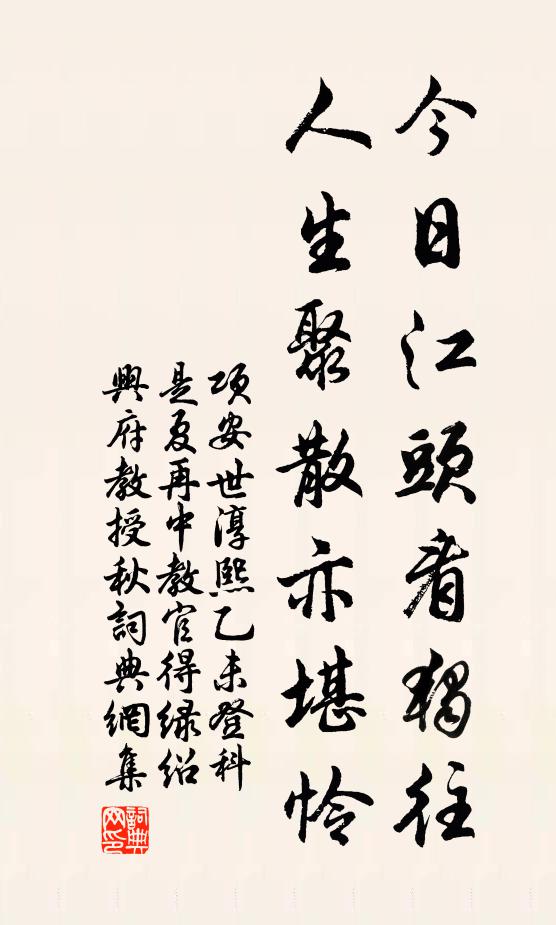 今日江頭看獨往
人生聚散亦堪怜
項安世淳熙乙未登科
是夏再中教官得绿绍
興府教授秋詞典網集
詞典网印